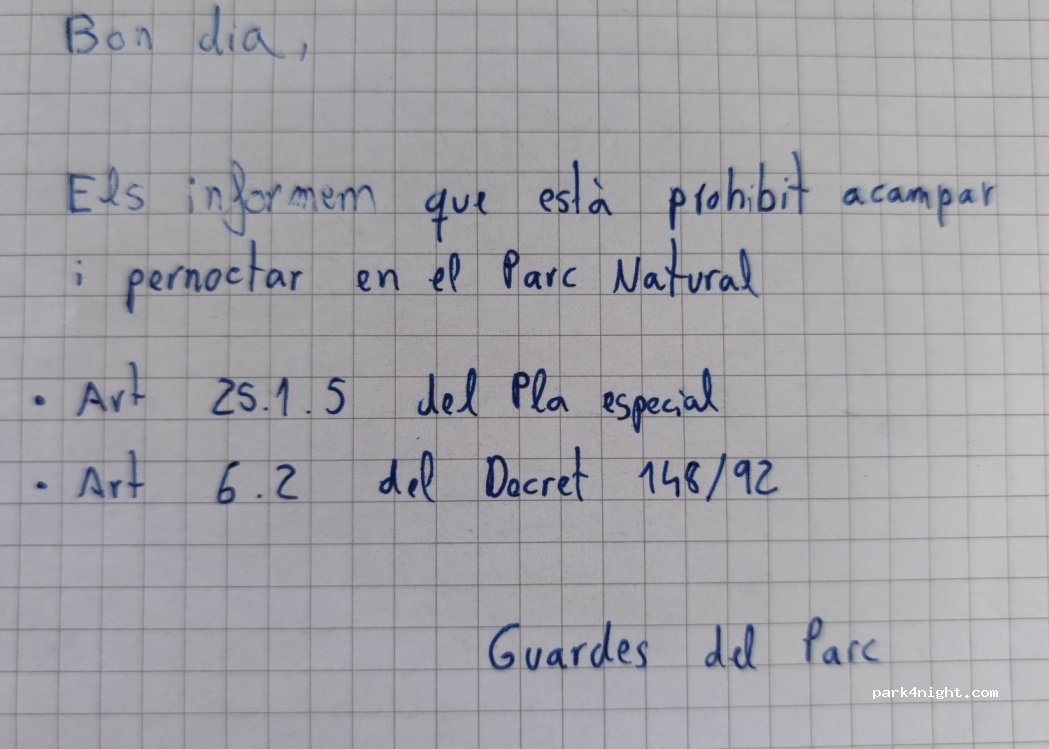 Bon dia,
Els informem que està prohibit acampar
i pernoctar en el Parc Natural
• Art 25.1.5 del Pla especial
• Art 6.2 del Decret 148/92
Guardes del Parc
park4night.com